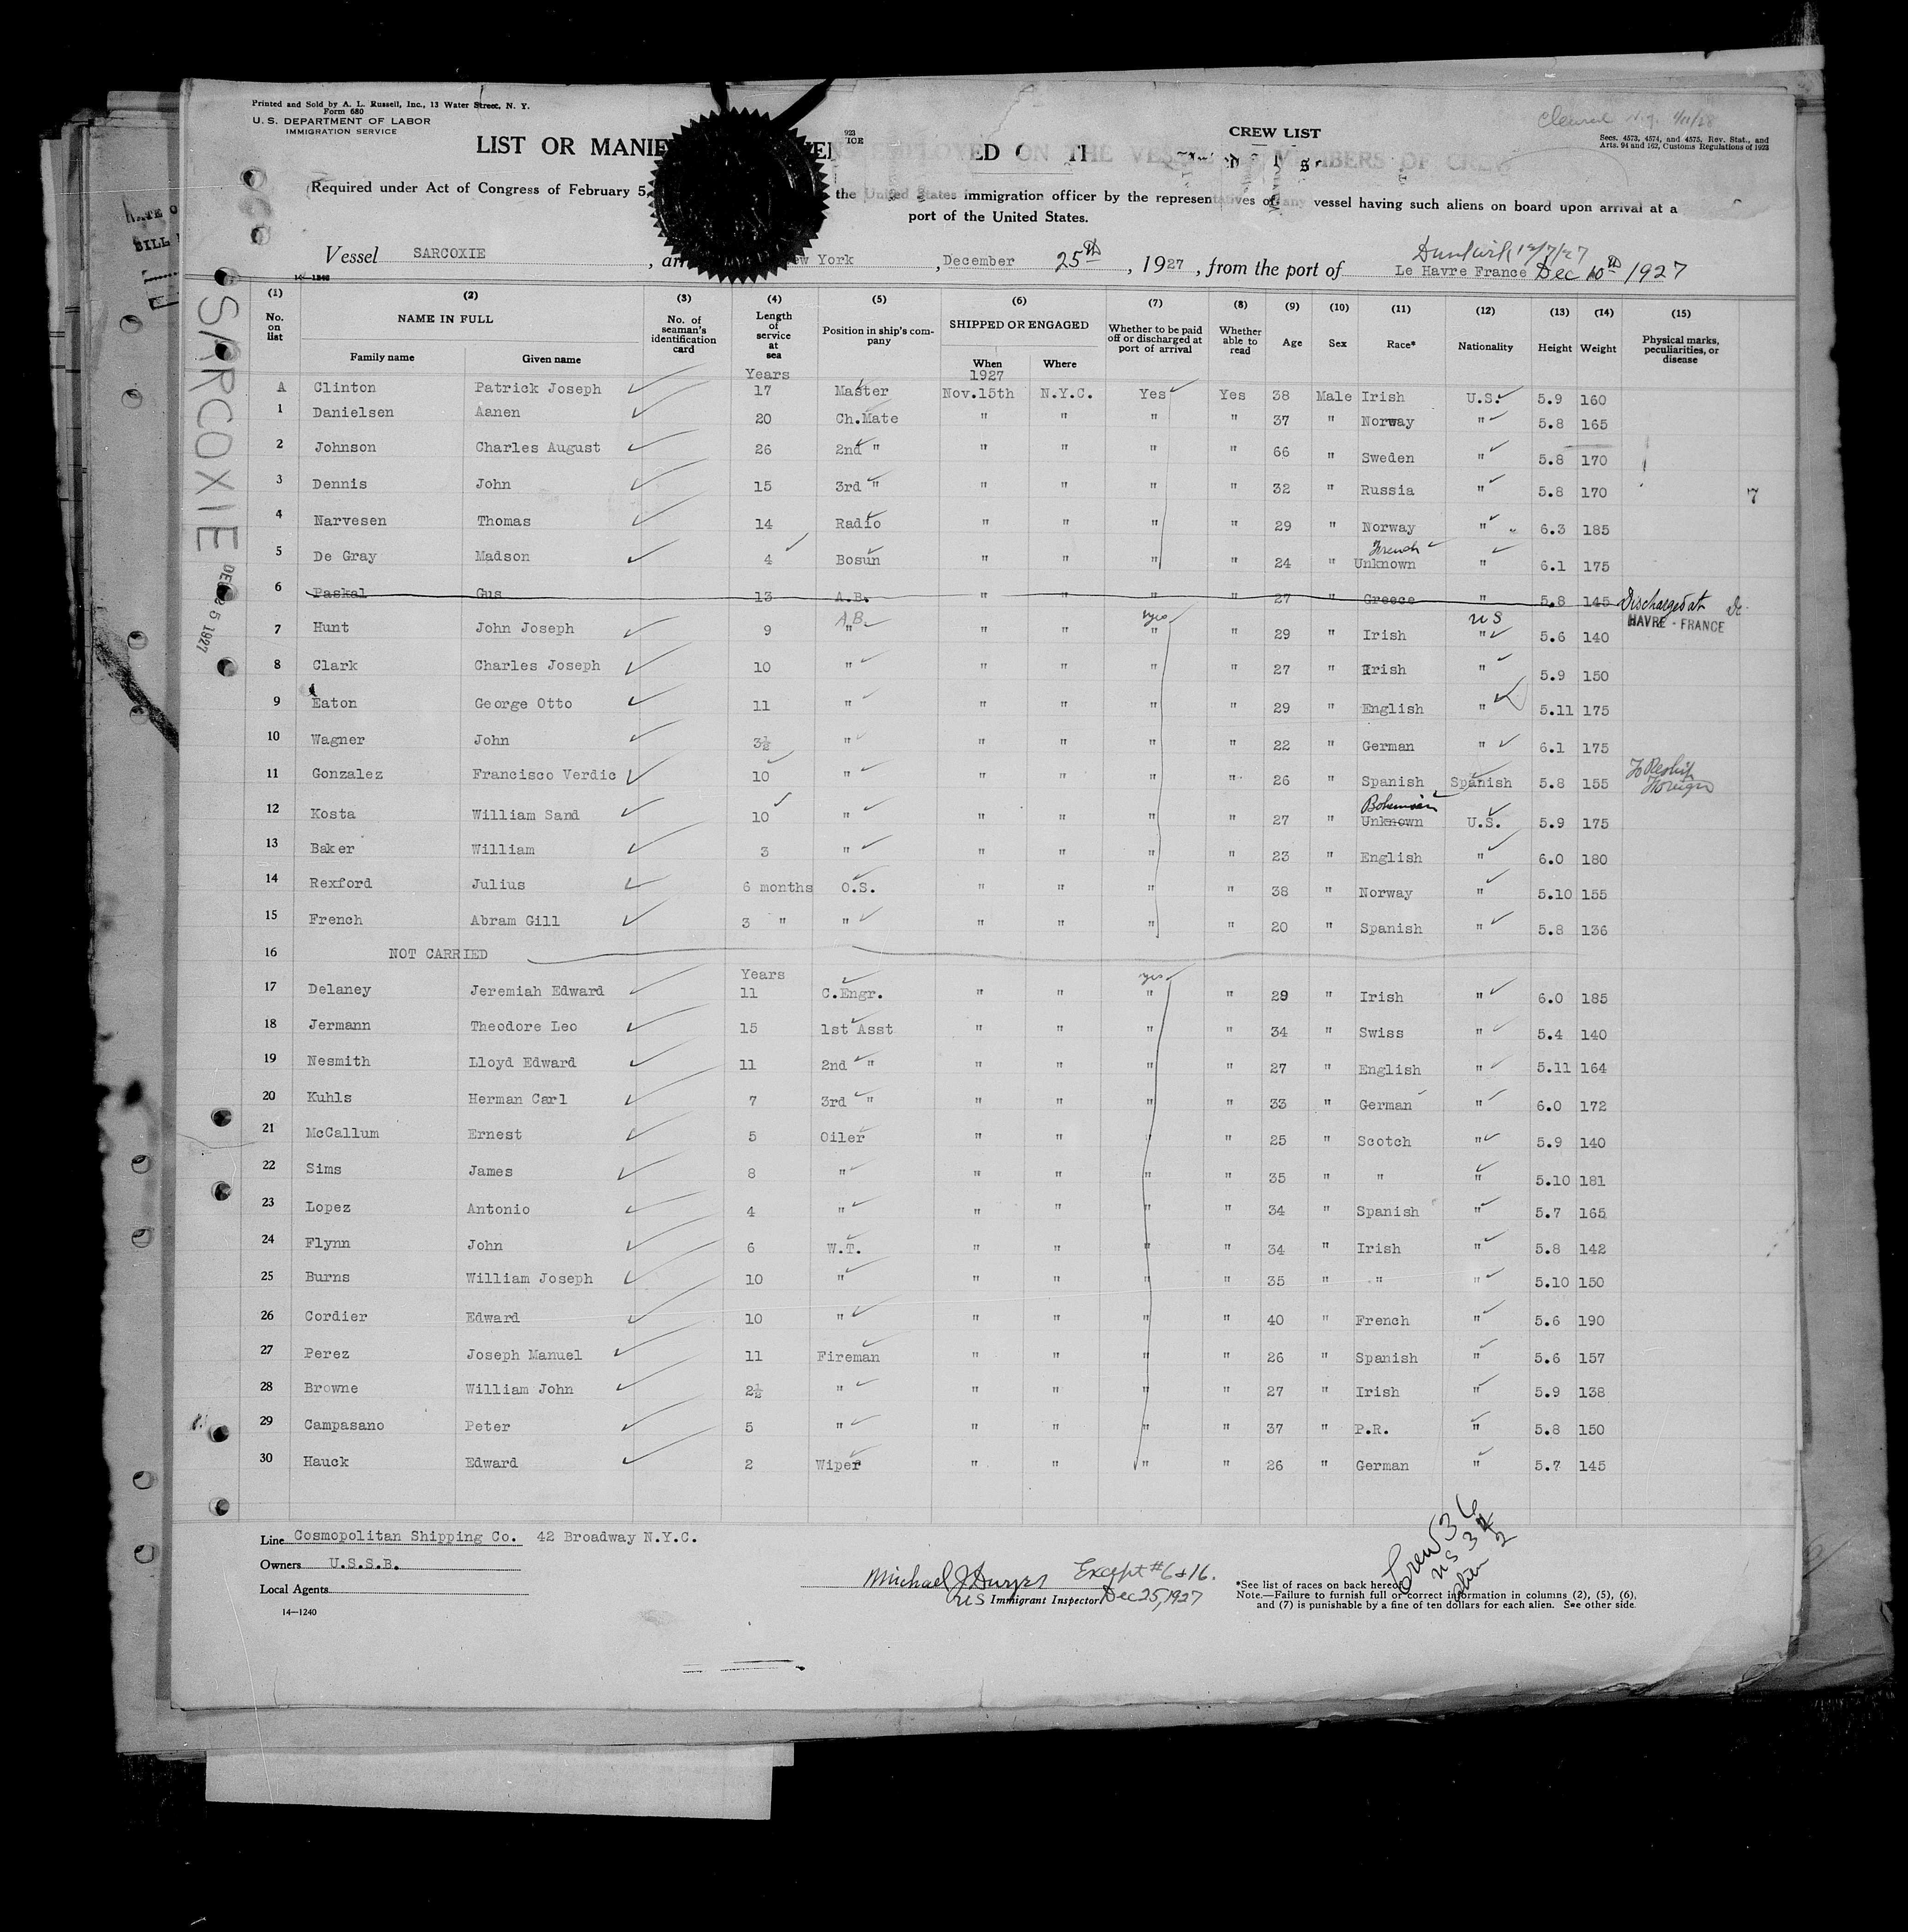 Printed and Sold by A. L. Russell, Inc., 13 Water Street, N. Y.
Form 680
U. S. DEPARTMENT OF LABOR
IMMIGRATION SERVICE
CREW LIST
Cleared N.Y. 4/11/28
Secs. 4573, 4574, and 4575, Rev. Stat., and
Arts. 94 and 162, Customs Regulations of 1923
LIST OR MANIF EMPLOYED ON THE VES MEMBERS OF CREW
Required under Act of Congress of February 5, the United States immigration officer by the representatives of any vessel having such aliens on board upon arrival at a
port of the United States.
Dunkirk 12/7/27
Vessel SARCOXIE, arr ew York, December 25th, 1927, from the port of Le Havre France Dec 10th 1927
14-1240
SARCOXIE
(1) (2) (3) (4) (5) (6) (7) (8) (9) (10) (11) (12) (13) (14) (15)
No. on list NAME IN FULL Family name Given name No. of seaman's identification card Length of service at sea Position in ship's company SHIPPED OR ENGAGED When Where Whether to be paid off or discharged at port of arrival Whether able to read Age Sex Race* Nationality Height Weight Physical marks, peculiarities, or disease
Years 1927
A Clinton Patrick Joseph 17 Master Nov.15th N.Y.C. Yes Yes 38 Male Irish U.S. 5.9 160
1 Danielsen Aanen 20 Ch.Mate " " " " 37 " Norway " 5.8 165
2 Johnson Charles August 26 2nd " " " " " 66 " Sweden " 5.8 170
3 Dennis John 15 3rd " " " " " 32 " Russia " 5.8 170 7
4 Narvesen Thomas 14 Radio " " " " 29 " Norway " 6.3 185
5 De Gray Madson 4 Bosun " " " " 24 " French Unknown " 6.1 175
6 Paskal Gus 13 A.B. " " " 27 " Greece " 5.8 145 Discharged at
HAVRE - FRANCE
7 Hunt John Joseph 9 A.B. " " " yes " " 29 " Irish US " 5.6 140
8 Clark Charles Joseph 10 " " " " " 27 " Irish " 5.9 150
9 Eaton George Otto 11 " " " " " 29 " English " 5.11 175
10 Wagner John 3½ " " " " " 22 " German " 6.1 175
11 Gonzalez Francisco Verdic 10 " " " " " 26 " Spanish Spanish 5.8 155 To Reship Foreign
12 Kosta William Sand 10 " " " " " 27 " Bohemian Unknown U.S. 5.9 175
13 Baker William 3 " " " " " 23 " English " 6.0 180
14 Rexford Julius 6 months O.S. " " " " 38 " Norway " 5.10 155
15 French Abram Gill 3 " " " " " " 20 " Spanish " 5.8 136
16 NOT CARRIED
Years
17 Delaney Jeremiah Edward 11 C.Engr. " " yes " " 29 " Irish " 6.0 185
18 Jermann Theodore Leo 15 1st Asst " " " " 34 " Swiss " 5.4 140
19 Nesmith Lloyd Edward 11 2nd " " " " " 27 " English " 5.11 164
20 Kuhls Herman Carl 7 3rd " " " " " 33 " German " 6.0 172
21 McCallum Ernest 5 Oiler " " " " 25 " Scotch " 5.9 140
22 Sims James 8 " " " " " 35 " " " 5.10 181
23 Lopez Antonio 4 " " " " " 34 " Spanish " 5.7 165
24 Flynn John 6 W.T. " " " " 34 " Irish " 5.8 142
25 Burns William Joseph 10 " " " " " 35 " " " 5.10 150
26 Cordier Edward 10 " " " " " 40 " French " 5.6 190
27 Perez Joseph Manuel 11 Fireman " " " " 26 " Spanish " 5.6 157
28 Browne William John 2½ " " " " " 27 " Irish " 5.9 138
29 Campasano Peter 5 " " " " " 37 " P.R. " 5.8 150
30 Hauck Edward 2 Wiper " " " " 26 " German " 5.7 145
Crew 36
US 34
alien 2
Line Cosmopolitan Shipping Co. 42 Broadway N.Y.C.
Owners U.S.S.B.
Local Agents
14—1240
Michael J Except #6 & 16.
US Immigrant Inspector Dec 25, 1927
*See list of races on back hereof.
Note.—Failure to furnish full or correct information in columns (2), (5), (6),
and (7) is punishable by a fine of ten dollars for each alien. See other side.